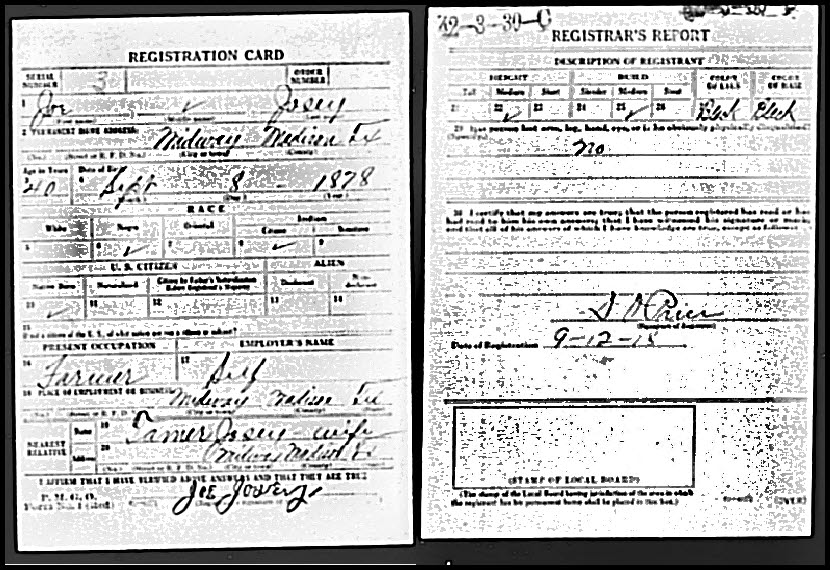 REGISTRATION CARD
SERIAL NUMBER 3 ORDER NUMBER
1 Joe ✓ Josey
(First name) (Middle name) (Last name)
2 PERMANENT HOME ADDRESS:
Midway Madison Tx
(No.) (Street or R. F. D. No.) (City or town) (County) (State)
Age in Years Date of Birth
3 40 4 Sept 8 - 1878
(Month.) (Day.) (Year.)
RACE
White Negro Oriental Indian
Citizen Noncitizen
5 6 ✓ 7 8 ✓ 9
U. S. CITIZEN ALIEN
Native Born Naturalized Citizen by Father's Naturalization Before Registrant's Majority Declarant Non-declarant
10 ✓ 11 12 13 14
15
If not a citizen of the U. S., of what nation are you a citizen or subject?
PRESENT OCCUPATION EMPLOYER'S NAME
16 Farmer 17 Self
18 PLACE OF EMPLOYMENT OR BUSINESS:
Midway Madison Tx
(No.) (Street or R. F. D. No.) (City or town) (County) (State)
NEAREST RELATIVE
Name 19 Tamer Josey wife
Address 20 Midway Madison Tx
(No.) (Street or R. F. D. No.) (City or town) (County) (State)
I AFFIRM THAT I HAVE VERIFIED ABOVE ANSWERS AND THAT THEY ARE TRUE
P. M. G. O.
Form No. 1 (Red)
42-3-30-C
REGISTRAR'S REPORT
DESCRIPTION OF REGISTRANT
HEIGHT BUILD COLOR OF EYES COLOR OF HAIR
Tall Medium Short Slender Medium Stout
21 22 ✓ 23 24 25 ✓ 26 Black Black
29 Has person lost arm, leg, hand, eye, or is he obviously physically disqualified?
(Specify.)
no
30 I certify that my answers are true; that the person registered has read or has
had read to him his own answers; that I have witnessed his signature or mark,
and that all of his answers of which I have knowledge are true, except as follows:
(Signature of Registrar)
Date of Registration 9-12-18
(STAMP OF LOCAL BOARD)
(The stamp of the Local Board having jurisdiction of the area in which
the registrant has his permanent home shall be placed in this box.)